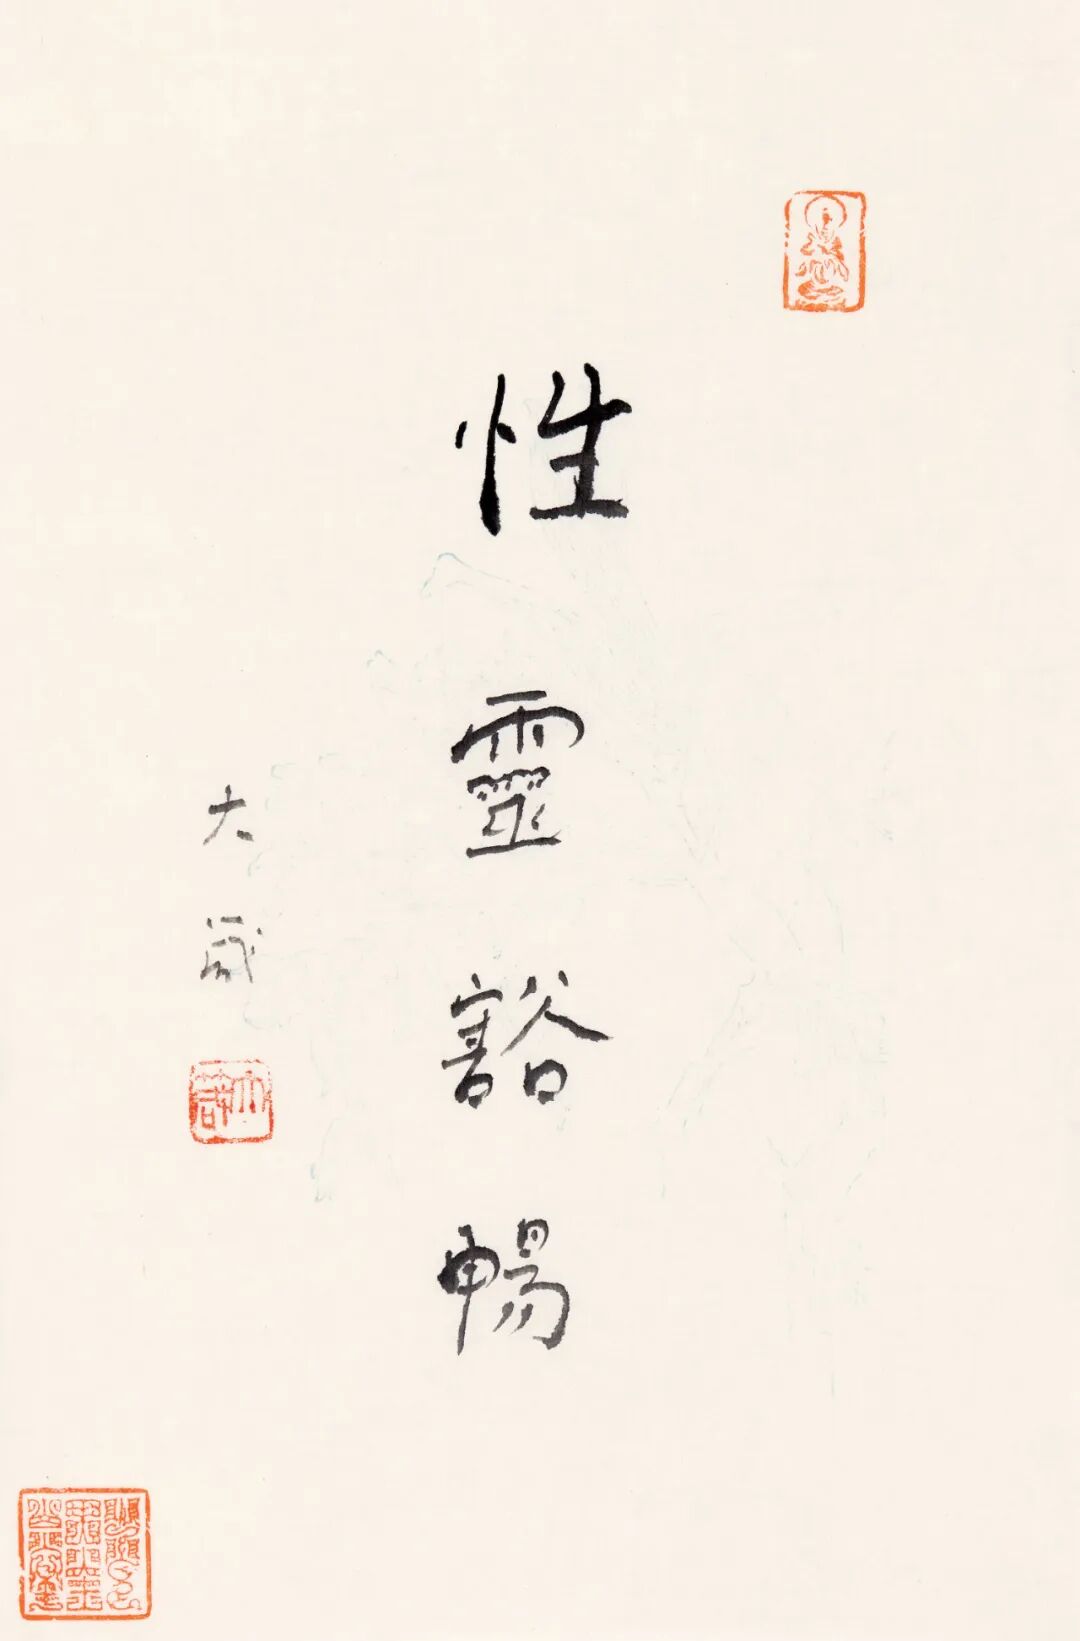 性靈豁暢
大箴